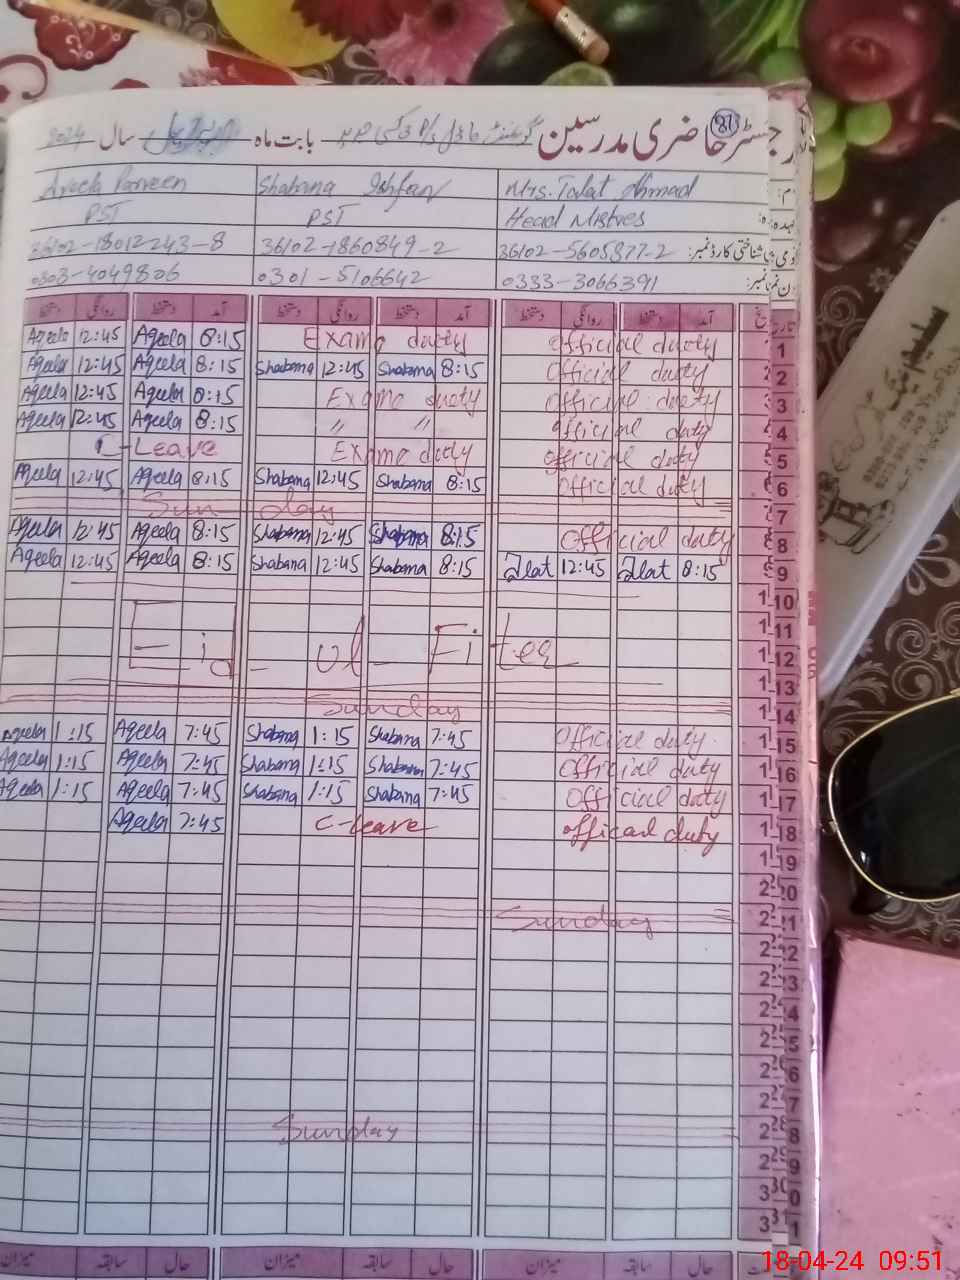 رجسٹر حاضری مدرسین بابت ماہ سال 2024
Mrs. Talat Ahmad Shabana Ishfaq Aqeela Parveen
Head Mistres PST PST
36102-5605877-2 36102-1860849-2 36102-18012243-8
0333-3066391 0301-5106642 0303-4049806
تاریخ آمد دستخط روانگی دستخط آمد دستخط روانگی دستخط آمد دستخط روانگی دستخط
1 Official duety Exame duety 8:15 Aqeela 12:45 Aqeela
2 Official duety 8:15 Shabana 12:45 Shabana 8:15 Aqeela 12:45 Aqeela
3 Official duety Exame duety 8:15 Aqeela 12:45 Aqeela
4 Official duty " " 8:15 Aqeela 12:45 Aqeela
5 Official duty Exame duty C-Leave
6 Official duty 8:15 Shabana 12:45 Shabana 8:15 Aqeela 12:45 Aqeela
7 Sunday
8 Official duty 8:15 Shabana 12:45 Shabana 8:15 Aqeela 12:45 Aqeela
9 8:15 Talat 12:45 Talat 8:15 Shabana 12:45 Shabana 8:15 Aqeela 12:45 Aqeela
10
11
12 Eid_ul_Fiter
13
14 Sunday
15 Official duty. 7:45 Shabana 1:15 Shabana 7:45 Aqeela 1:15 Aqeela
16 Official duty 7:45 Shabana 1:15 Shabana 7:45 Aqeela 1:15 Aqeela
17 Official duty 7:45 Shabana 1:15 Shabana 7:45 Aqeela 1:15 Aqeela
18 official duty C-Leave 7:45 Aqeela
19
20
21 Sunday
22
23
24
25
26
27
28 Sunday
29
30
31
حال سابقہ میزان حال سابقہ میزان حال سابقہ میزان
18-04-24 09:51